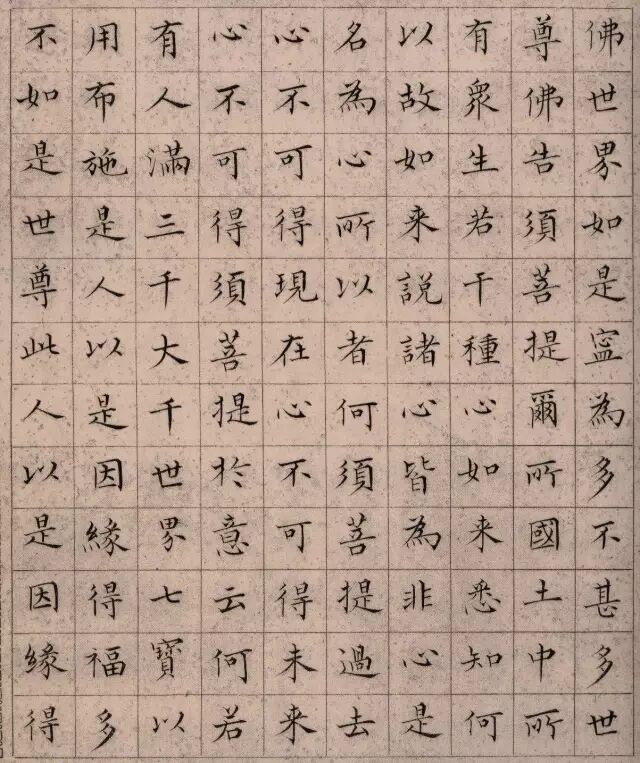 佛世界如是寍為多不甚多世
尊佛告須菩提爾所國土中所
有眾生若干種心如来悉知何
以故如来說諸心皆為非心是
名為心所以者何須菩提過去
心不可得現在心不可得未来
心不可得須菩提於意云何若
有人滿三千大千世界七寶以
用布施是人以是因緣得福多
不如是世尊此人以是因緣得